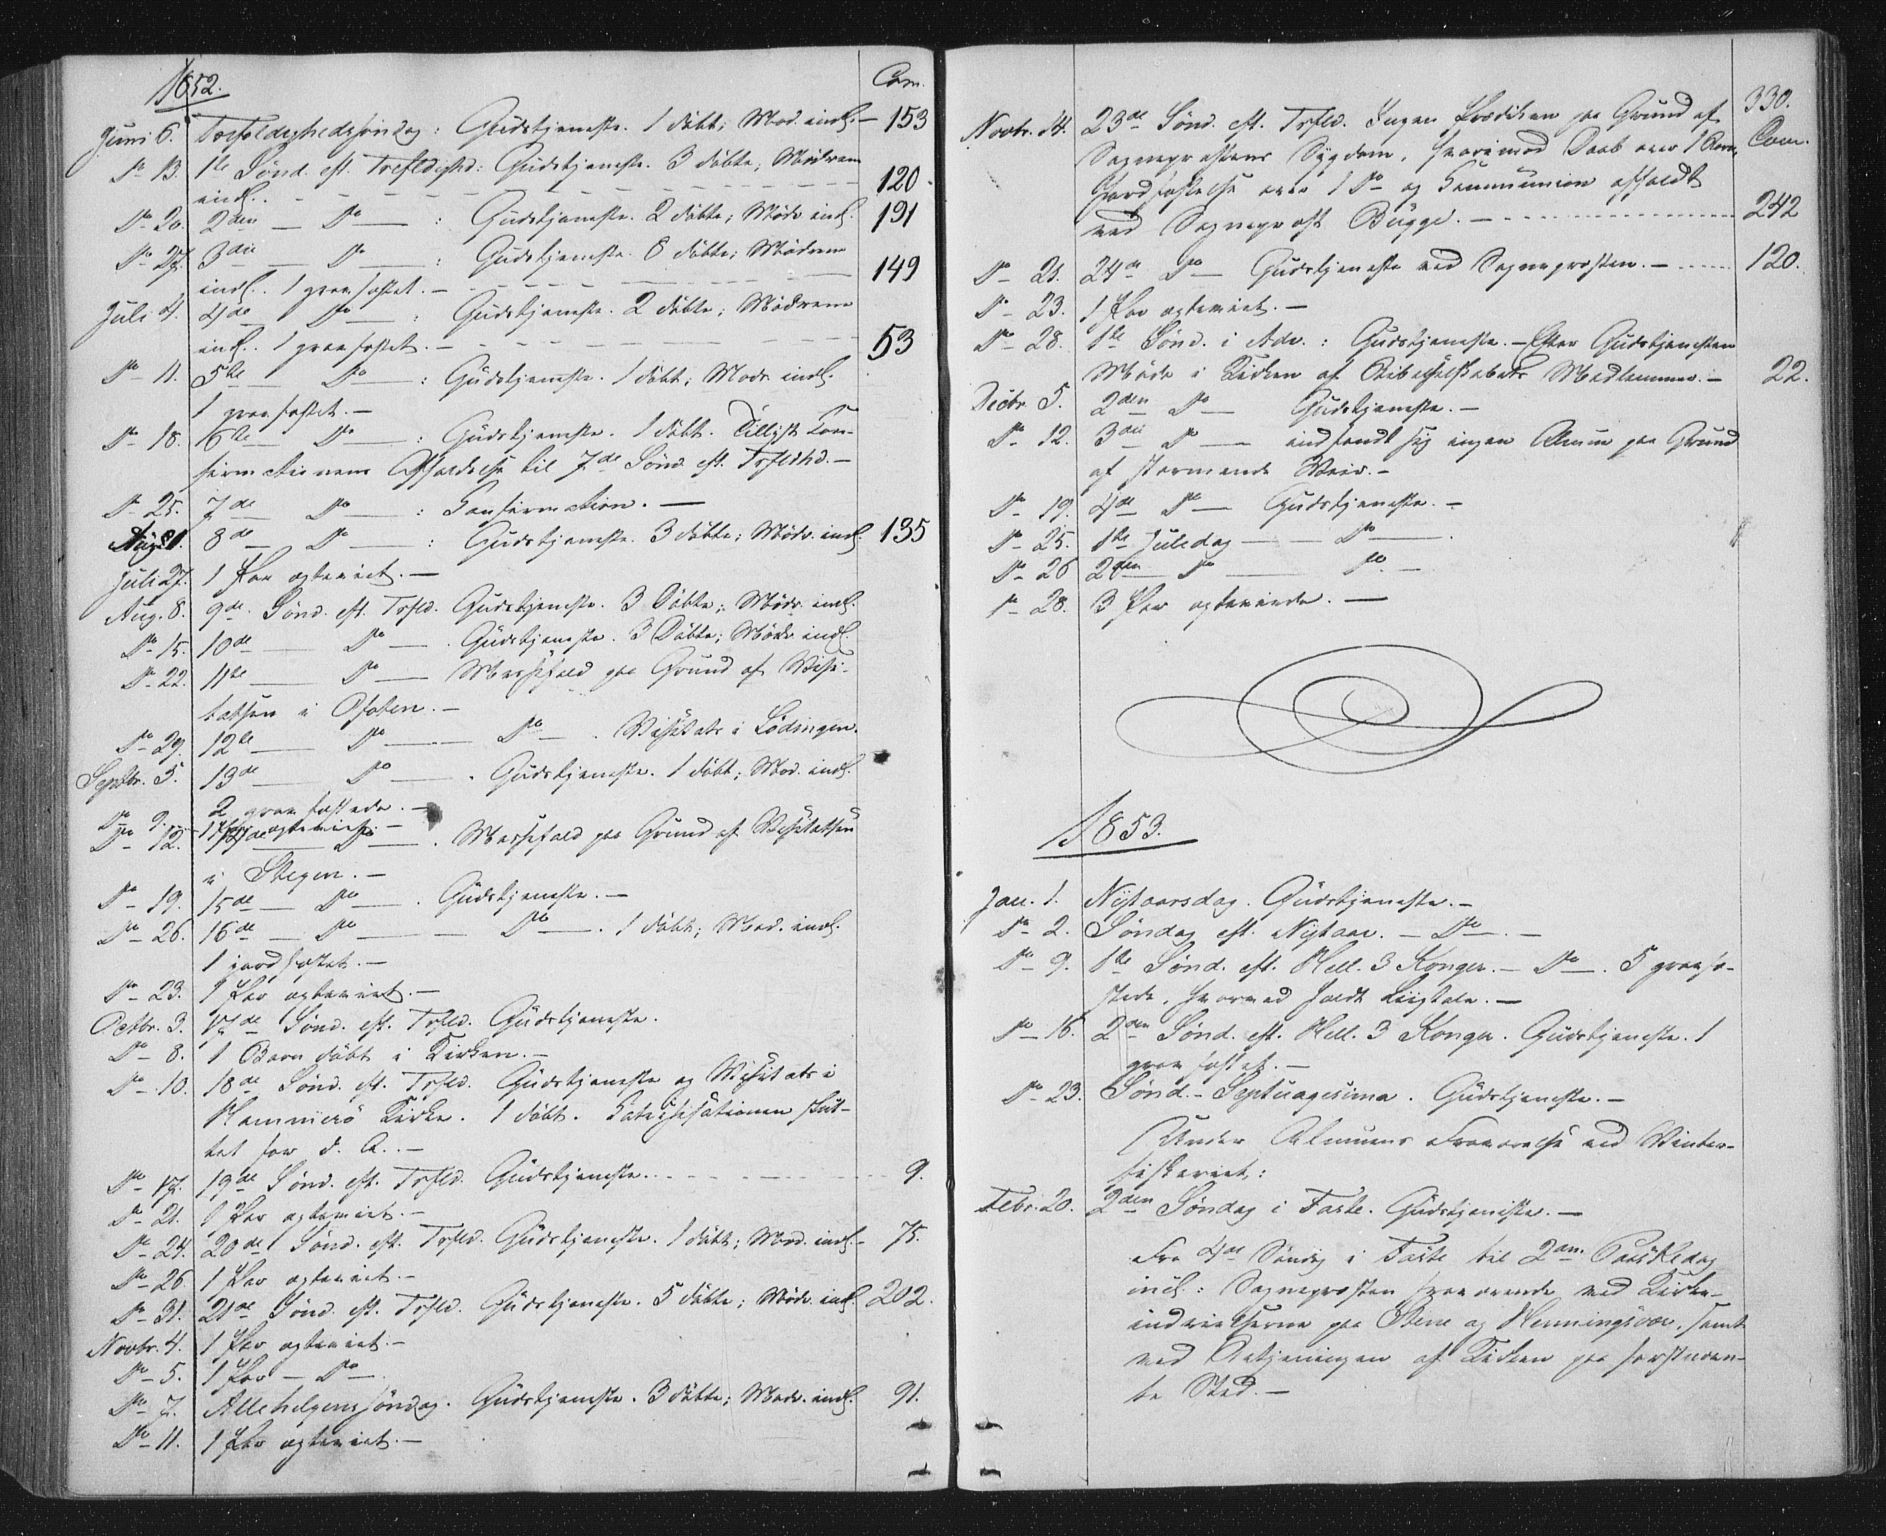 1852.
Com.
Juni 6. Trefoldighedssøndag: Gudstjeneste. 1 döbt; Mod. indl. — 153
Do 13. 1ste Sønd. eft. Trefoldighd: Gudstjeneste. 3 döbte; Mødrene
indl. 120.
Do 20. 2den — Do — : Gudstjeneste. 2 döbte; Mødr. indl. 191
Do 27. 3die — Do — : Gudstjeneste. 8 döbte; Mødrene
indl. 1 graefæstet. — 149
Juli 4. 4de — Do — : Gudstjeneste. 2 döbte; Mødrene
indl. 1 graefæstet. — 53
Do 11. 5te — Do — : Gudstjeneste. 1 döbt; Modr. indl.
1 graefæstet. —
Do 18. 6te — Do — : Gudstjeneste. 1 döbt. Tillyst Con-
firmationens Afholdelse til 7de Sønd. eft. Trfldhd. —
Do 25. 7de — Do — : Confirmation. —
Aug. 1. 8de — Do — : Gudstjeneste. 3 döbte; Mødr. indl. 135
Juli 27. 1 Par egteviet. —
Aug. 8. 9de Sønd. eft. Trfld. Gudstjeneste. 3 Döbte; Mødr. indl.
Do 15. 10de — Do — . Gudstjeneste. 3 Döbte; Mødr. indl.
Do 22. 11te — Do — Messefald paa Grund af Visi-
tatsen i Ofoten. —
Do 29. 12te — Do — Do — . Visitats i Lødingen.
Septbr. 5. 13de — Do — . Gudstjeneste. 1 döbt; Mod. indl.
2 graefæstede. —
Do 9. 1 Par egteviet. —
Do 12. 14de — Do — . Messefald paa Grund af Visitatsen
i Stegen. —
Do 19. 15de — Do — . Gudstjeneste. —
Do 26. 16de — Do — Do — . 1 döbt; Mod. indl.
1 jordfæstet. —
Do 23. 1 Par egteviet. —
Octbr. 3. 17de Sønd. eft. Trfld. Gudstjeneste.
Do 8. 1 Barn döbt i Kirken. —
Do 10. 18de Sønd. eft. Trfld. Gudstjeneste og Visitats i
Hammerö Kirke. 1 döbt. Catechisationen slut-
tet for d. A. —
Do 17. 19de Sønd. eft. Trfld. Gudstjeneste. 9.
Do 21. 1 Par egteviet. —
Do 24. 20de Sønd. eft. Trfld. Gudstjeneste. 1 döbt; Mod. indl. — 75.
Do 26. 1 Par egteviet. —
Do 31. 21de Sønd. eft. Trfld. Gudstjeneste. 5 döbte; Mødr. indl. 202.
Novbr. 4. 1 Par egteviet. —
Do 5. 1 Par — Do — .
Do 7. Allehelgenssöndag. Gudstjeneste. 3 döbte; Modr. indl. 91.
Do 11. 1 Par egteviet. —
330.
Com.
Novbr. 14. 23de Sønd. eft. Trfld. Ingen Prædiken paa Grund af
Sognepræstens Sygdom, hvorimod Daab over 1 Barn,
Jordfæstelse over 1 Do og Communion afholdt
ved Sognepræst Bügge. — 242
Do 21. 24de Do — Gudstjeneste ved Sognepræsten. — 120.
Do 23. 1 Par egteviet. —
Do 28. 1ste Sønd. i Adv.: Gudstjeneste. — Efter Gudstjenesten
Møde i Kirken af Bibelselskabets Medlemmer. — 22.
Decbr. 5. 2den Do — Gudstjeneste. —
Do 12. 3die Do — indfandt sig ingen Almue paa Grund
af stormende Veir. —
Do 19. 4de Do — Gudstjeneste. —
Do 25. 1ste Juledag — Do — .
Do 26 2den Do — Do —
Do 28. 3 Par egteviede. —
1853.
Jan. 1. Nytaarsdag. Gudstjeneste. —
Do 2. Søndag eft. Nytaar. — Do —. —
Do 9. 1ste Sønd. eft. Hell. 3 Konger. — Do —. 5 graefæ-
stede, hvorved holdt Liigtale. —
Do 16. 2den Sønd. eft. Hell. 3 Konger. Gudstjeneste. 1
graefæstet. —
Do 23. Sønd. Septuagesima. Gudstjeneste. —
(Under Almuens Fraværelse ved Vinter-
fiskeriet:
Febr. 20. 2den Søndag i Faste. Gudstjeneste. —
Fra 4de Søndag i Faste til 2den Paaskedag
incl: Sognepræsten fraværende ved Kirke-
indvielserne paa Stene og Henningsvær, samt
ved Betjeningen af Kirken paa førstnævn-
te Sted. —